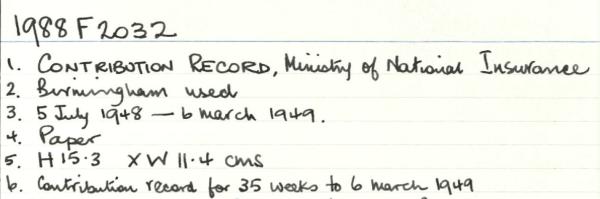 1988 F 2032
1. CONTRIBUTION RECORD, Ministry of National Insurance
2. Birmingham used
3. 5 July 1948 — 6 March 1949.
4. Paper
5. H 15.3 X W 11.4 cms
6. Contribution record for 35 weeks to 6 March 1949